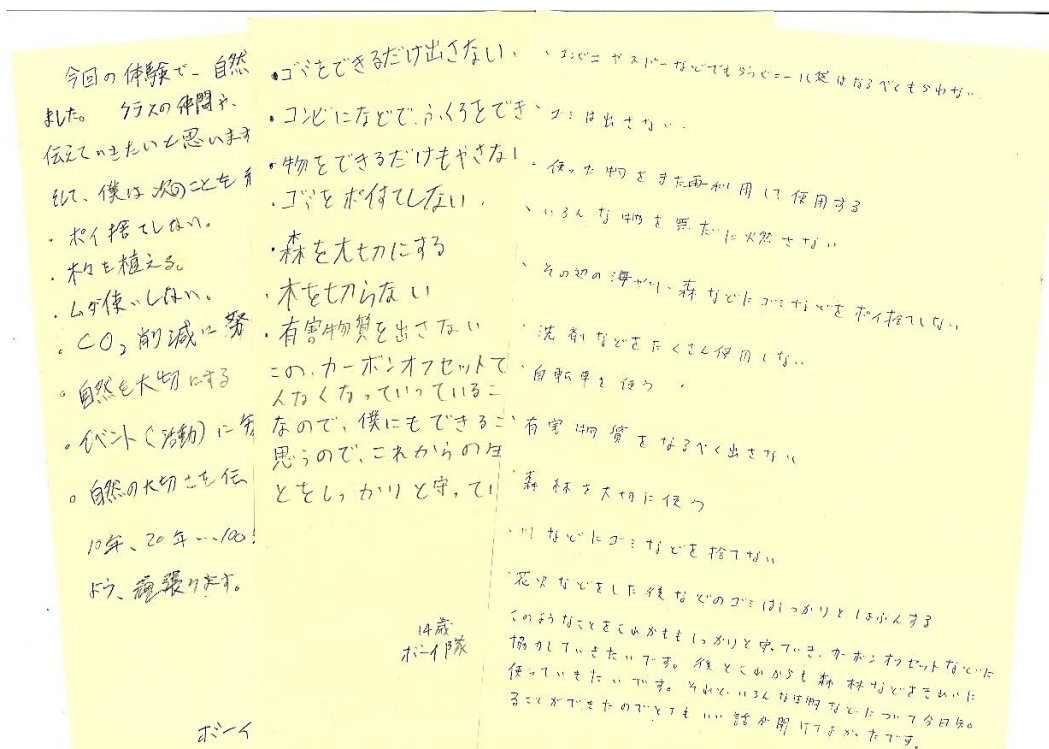 今回の体験で、自然
ました。 クラスの仲間や、
伝えていきたいと思います
そして、僕は次のことを
・ポイ捨てしない。
・木々を植える。
・ムダ使いしない。
・CO2削減に努
・自然を大切にする
・イベント(活動)に
・自然の大切さを伝
10年、20年…100
よう、頑張ります。
ボーイ
・ゴミをできるだけ出さない。
・コンビになどで、ふくろをでき
・物をできるだけもやさない
・ゴミをポイすてしない。
・森を大切にする
・木を切らない
・有害物質を出さない
この、カーボンオフセットで
んなくなっていっているこ
なので、僕にもできるこ
思うので、これからの生
とをしっかりと守ってい
14歳
ボーイ隊
、コンビニやスーパーなどでも ビニール袋はなるべくもらわない。
、ゴミは出さない。
・使った物をまた再利用して使用する
、いろんな物を無だに燃さない
、その辺の海や川、森などにゴミなどをポイ捨てしない
・洗剤などをたくさん使用しない
・自転車を使う。
・有害物質をなるべく出さない
・森林を大切に使う
・川などにゴミなどを捨てない
・花火などをした後などのゴミはしっかりとしょぶんする
このようなことをこれからもしっかりと守っていき、カーボンオフセットなどに
協力していきたいです。後とこれからも森林などをきれいに
使っていきたいです。それと、いろんな 物などについて今日知
ることができたのでとてもいい話が聞けてよかったです。